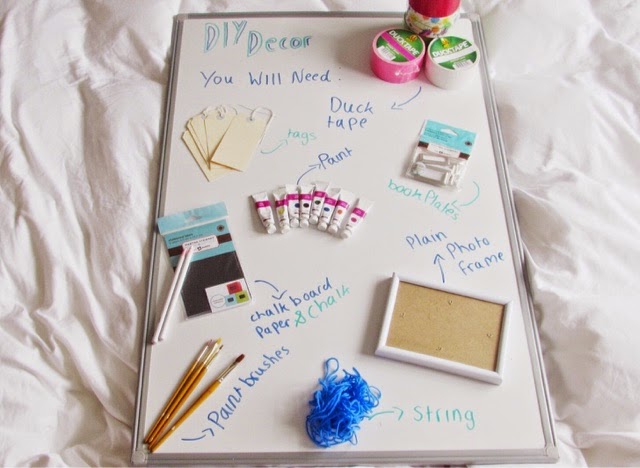 DIY Decor
You Will Need.
DUCK TAPE
DUCK TAPE
Duck
tape
tags
Paint
book Plates
Plain
Photo
frame
chalk board
Paper & Chalk
Paint brushes
String